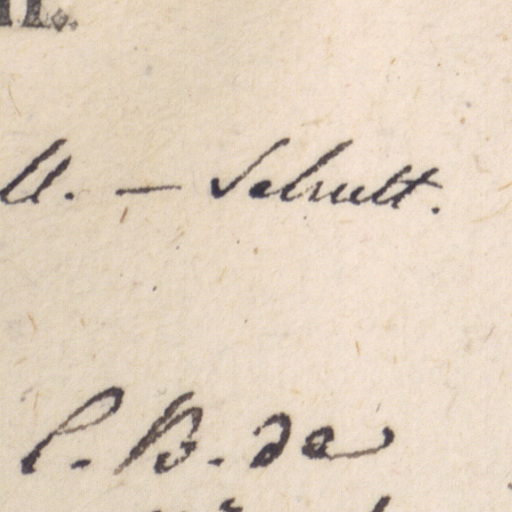 ll. — Schult.
P. B. de